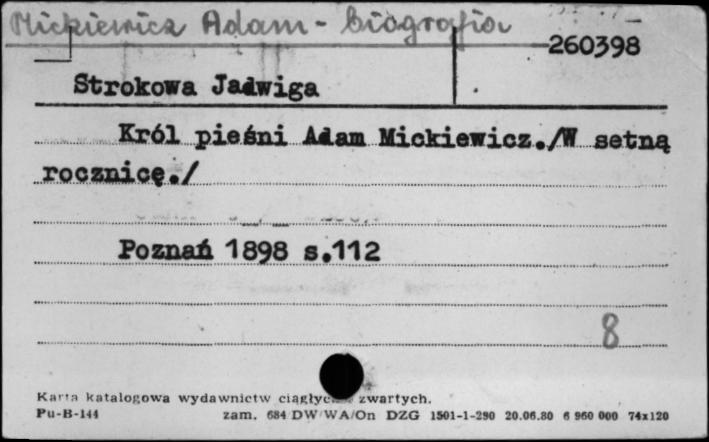 Mickiewicz Adam - biografia
260398
Strokowa Jadwiga
Król pieśni Adam Mickiewicz./W setną
rocznicę./
Poznań 1898 s.112
8
Karta katalogowa wydawnictw zwartych.
Pu-B-144 zam. 684 DW WA/On DZG 1501-1-290 20.06.80 6 960 000 74x120